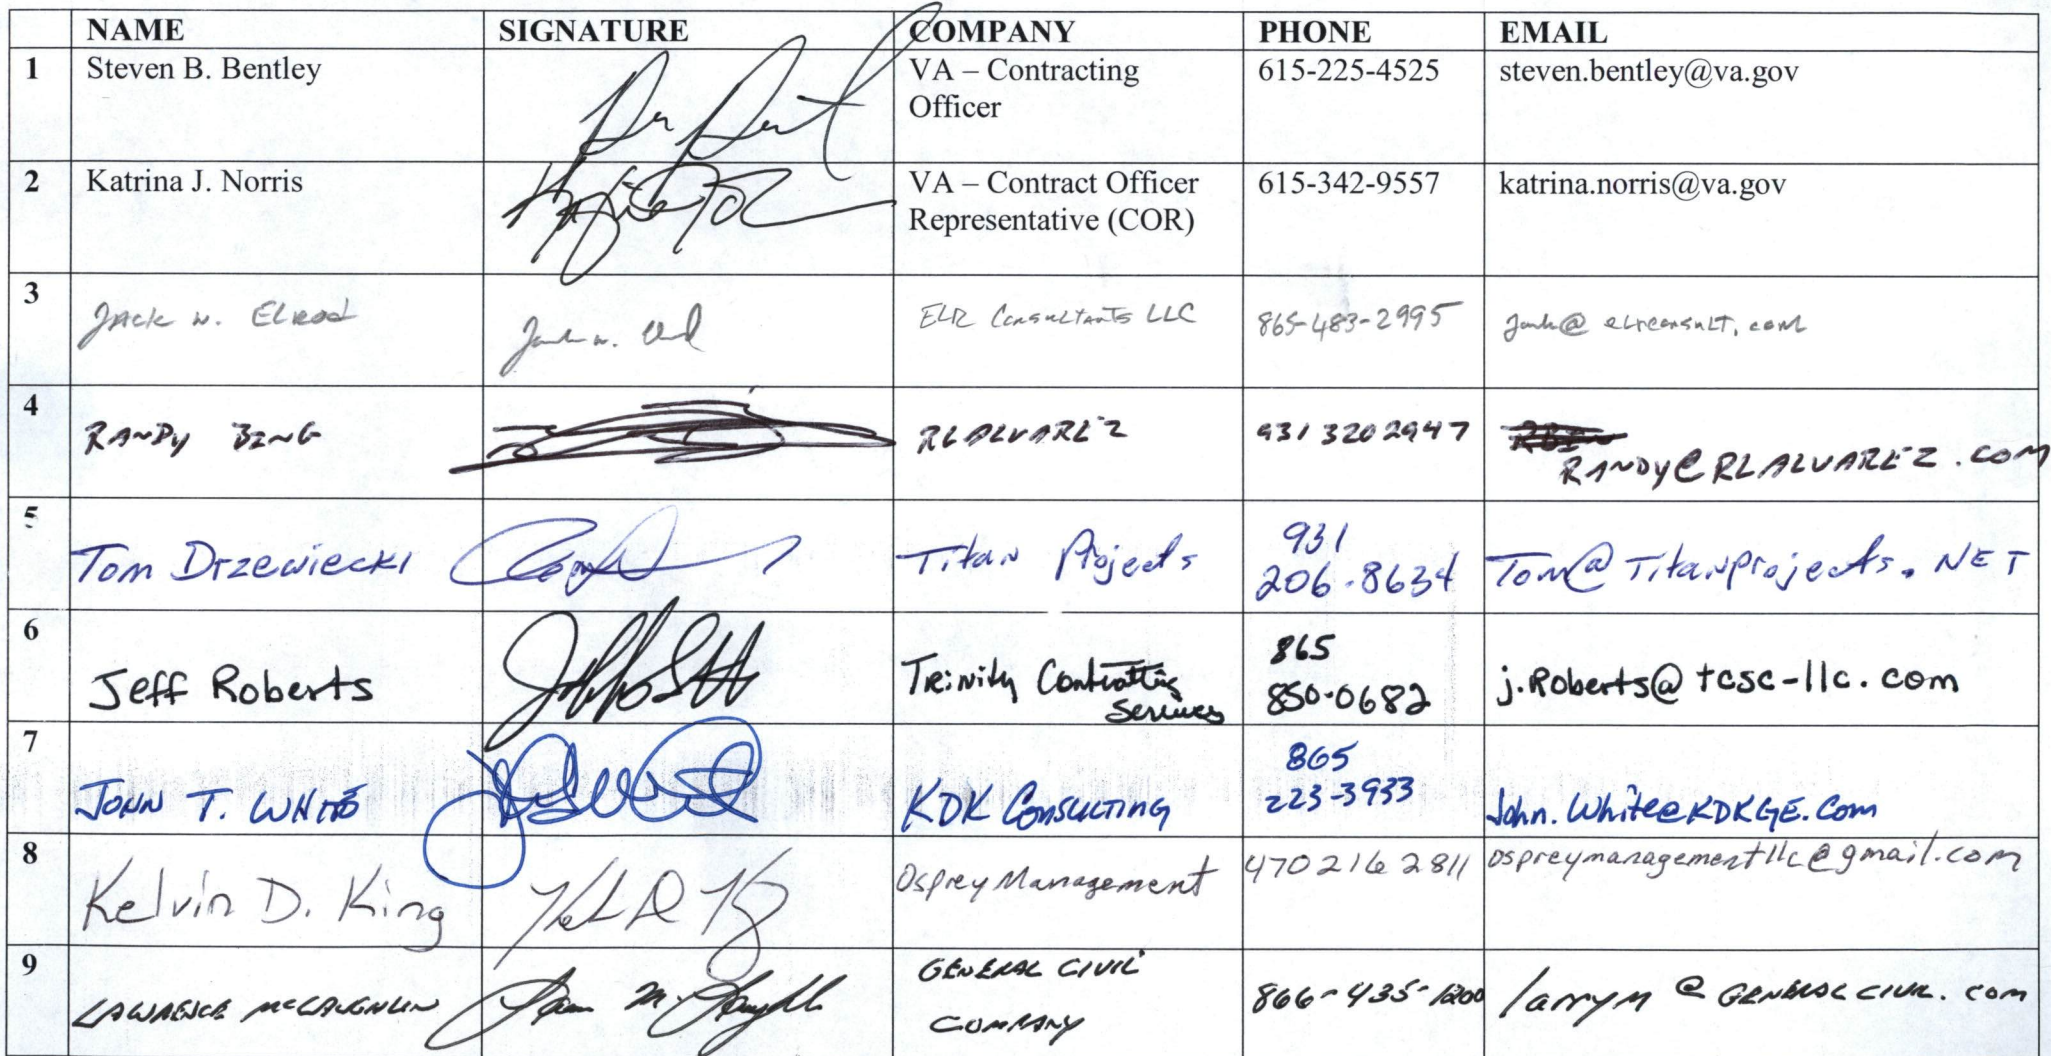 NAME SIGNATURE COMPANY PHONE EMAIL
1 Steven B. Bentley VA – Contracting 615-225-4525 steven.bentley@va.gov
Officer
2 Katrina J. Norris VA – Contract Officer 615-342-9557 katrina.norris@va.gov
Representative (COR)
3 Jack W. Elrod ELR Consultants LLC 865-483-2995 jack@elrconsult.com
4 RANDY BING RLALVAREZ 931 320 2947
RANDY@RLALVAREZ.COM
5 Tom Drzewiecki Titan Projects 931
206-8634 Tom@Titanprojects.NET
6 Jeff Roberts Trinity Contracting 865
Services 850-0682 j.Roberts@tcsc-llc.com
7 JOHN T. WHITE KDK CONSULTING 865
223-3933 John.White@KDKGE.Com
8 Kelvin D. King Osprey Management 470 216 2811 ospreymanagementllc@gmail.com
9 LAWRENCE McLAUGHLIN GENERAL CIVIL 866-435-1200 larrym@GENERALCIVIL.com
COMPANY